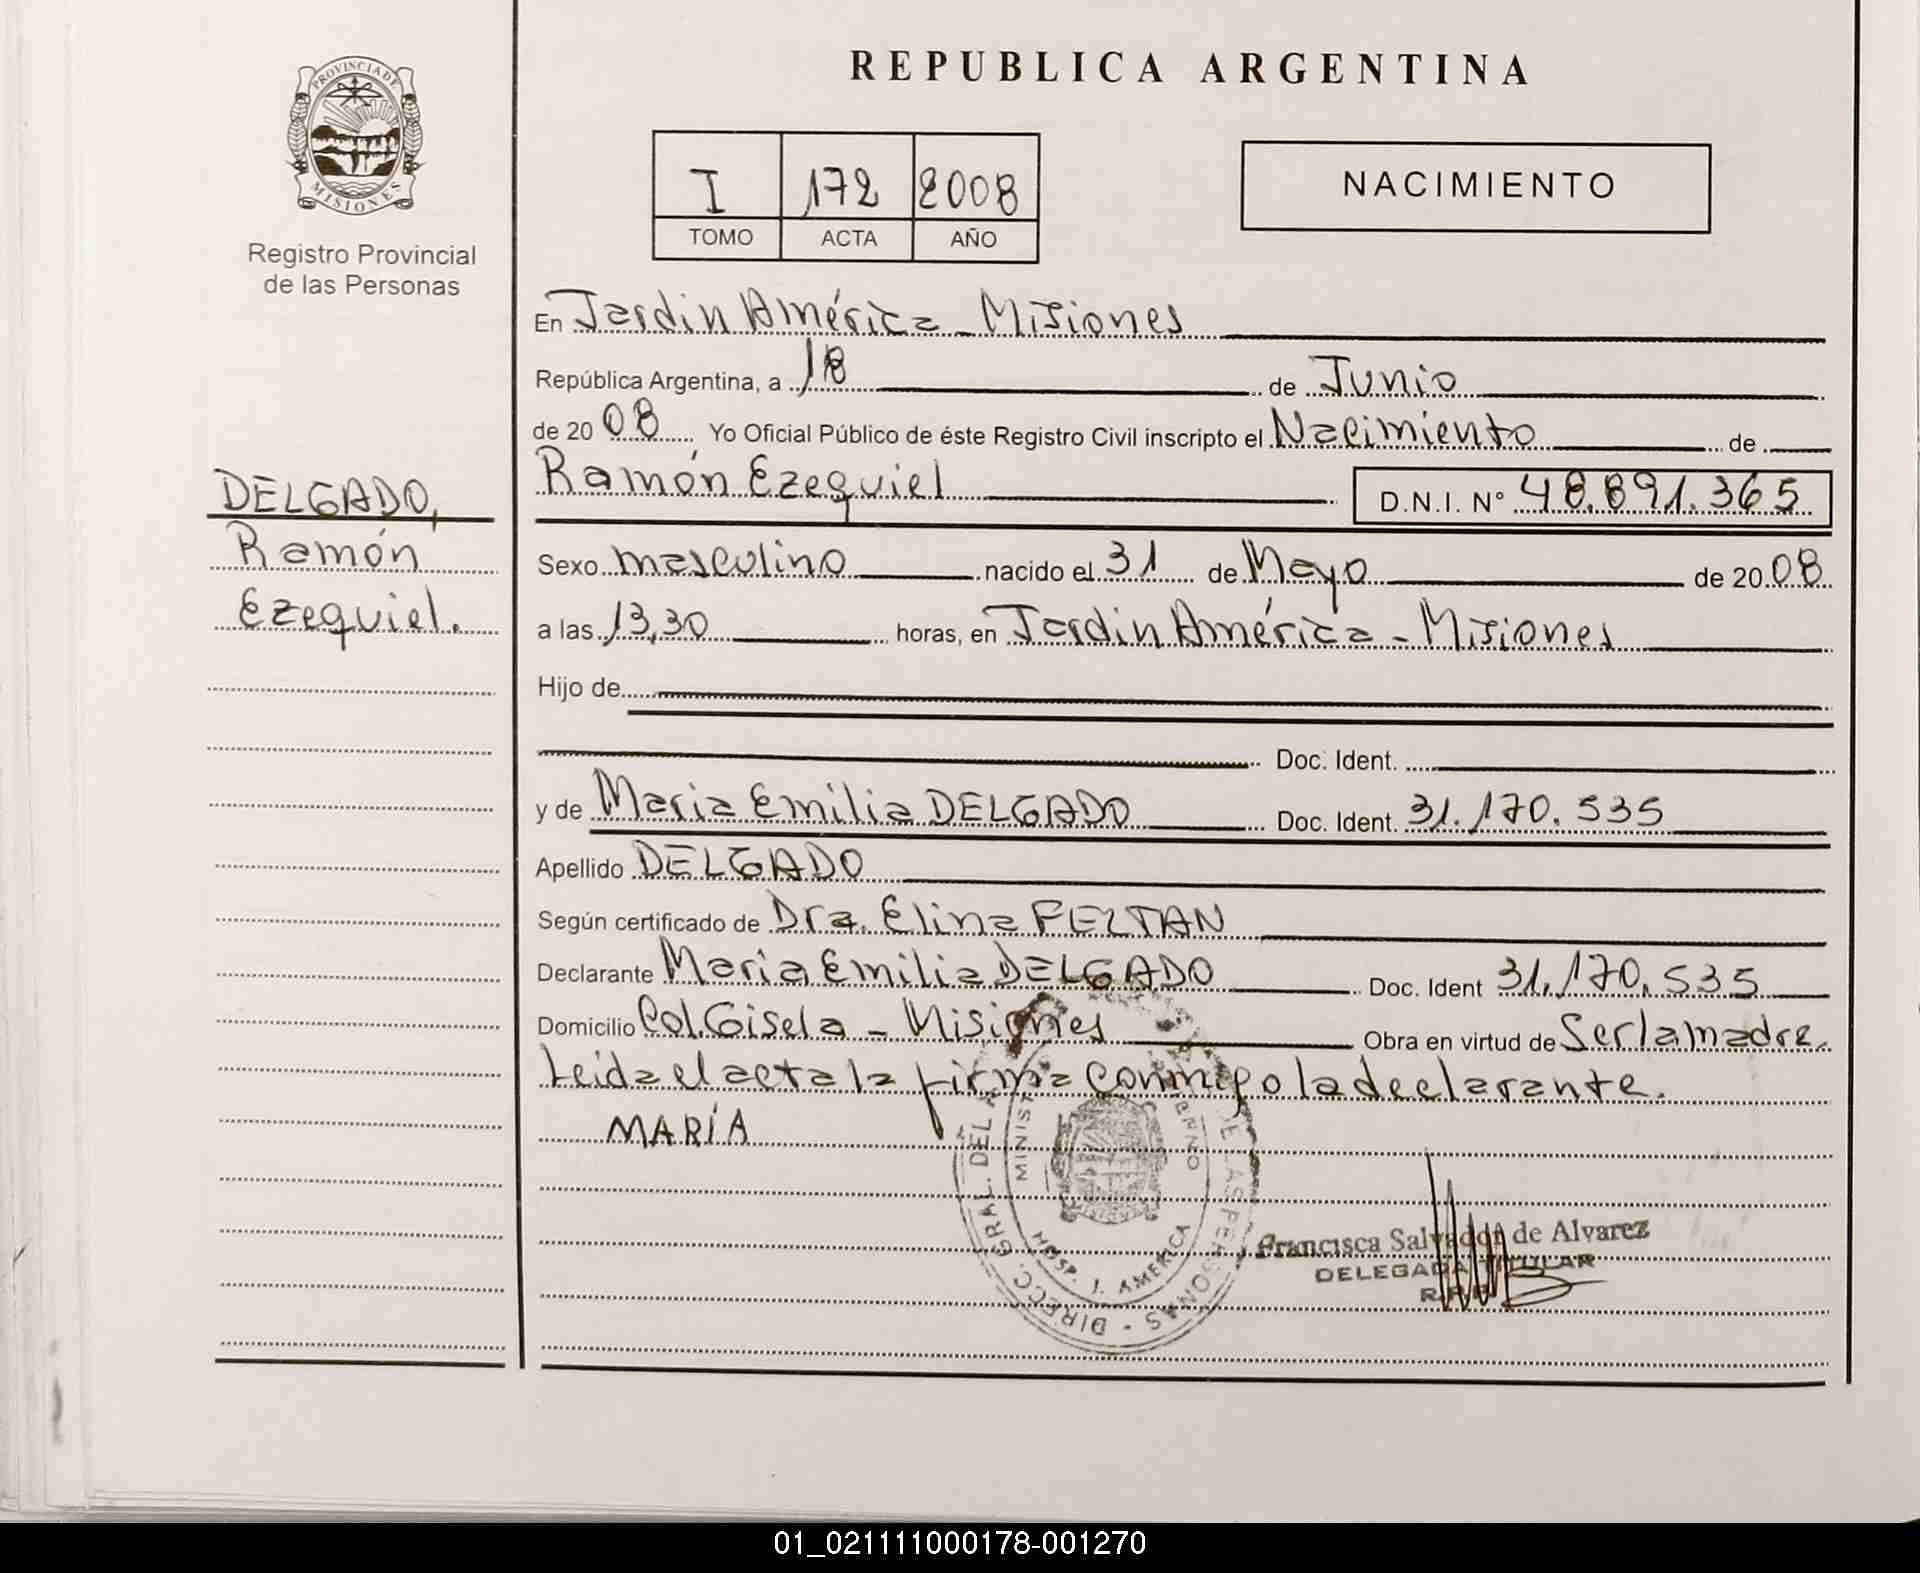 REPUBLICA ARGENTINA
PROVINCIA DE
MISIONES
Registro Provincial
de las Personas
I 172 2008
TOMO ACTA AÑO
NACIMIENTO
En Jardin América - Misiones
República Argentina, a 18 de Junio
de 20 08 Yo Oficial Público de éste Registro Civil inscripto el Nacimiento de
Ramón Ezequiel D.N.I. Nº 48.891.365
DELGADO,
Ramón
Ezequiel.
Sexo masculino nacido el 31 de Mayo de 20 08
a las 13,30 horas, en Jardin América - Misiones
Hijo de
Doc. Ident.
y de Maria Emilia DELGADO Doc. Ident. 31.170.535
Apellido DELGADO
Según certificado de Dra. Elina FELTAN
Declarante Maria Emilia DELGADO Doc. Ident 31.170.535
Domicilio Col. Gisela - Misiones Obra en virtud de Ser la madre.
Leida el acta la firma conmigo la declarante.
MARÍA
DIRECC. GRAL. DEL DE LAS PERSONAS
HOSP. J. AMERICA
Francisca Salvador de Alvarez
DELEGADA TITULAR
R.P.P.
01_021111000178-001270